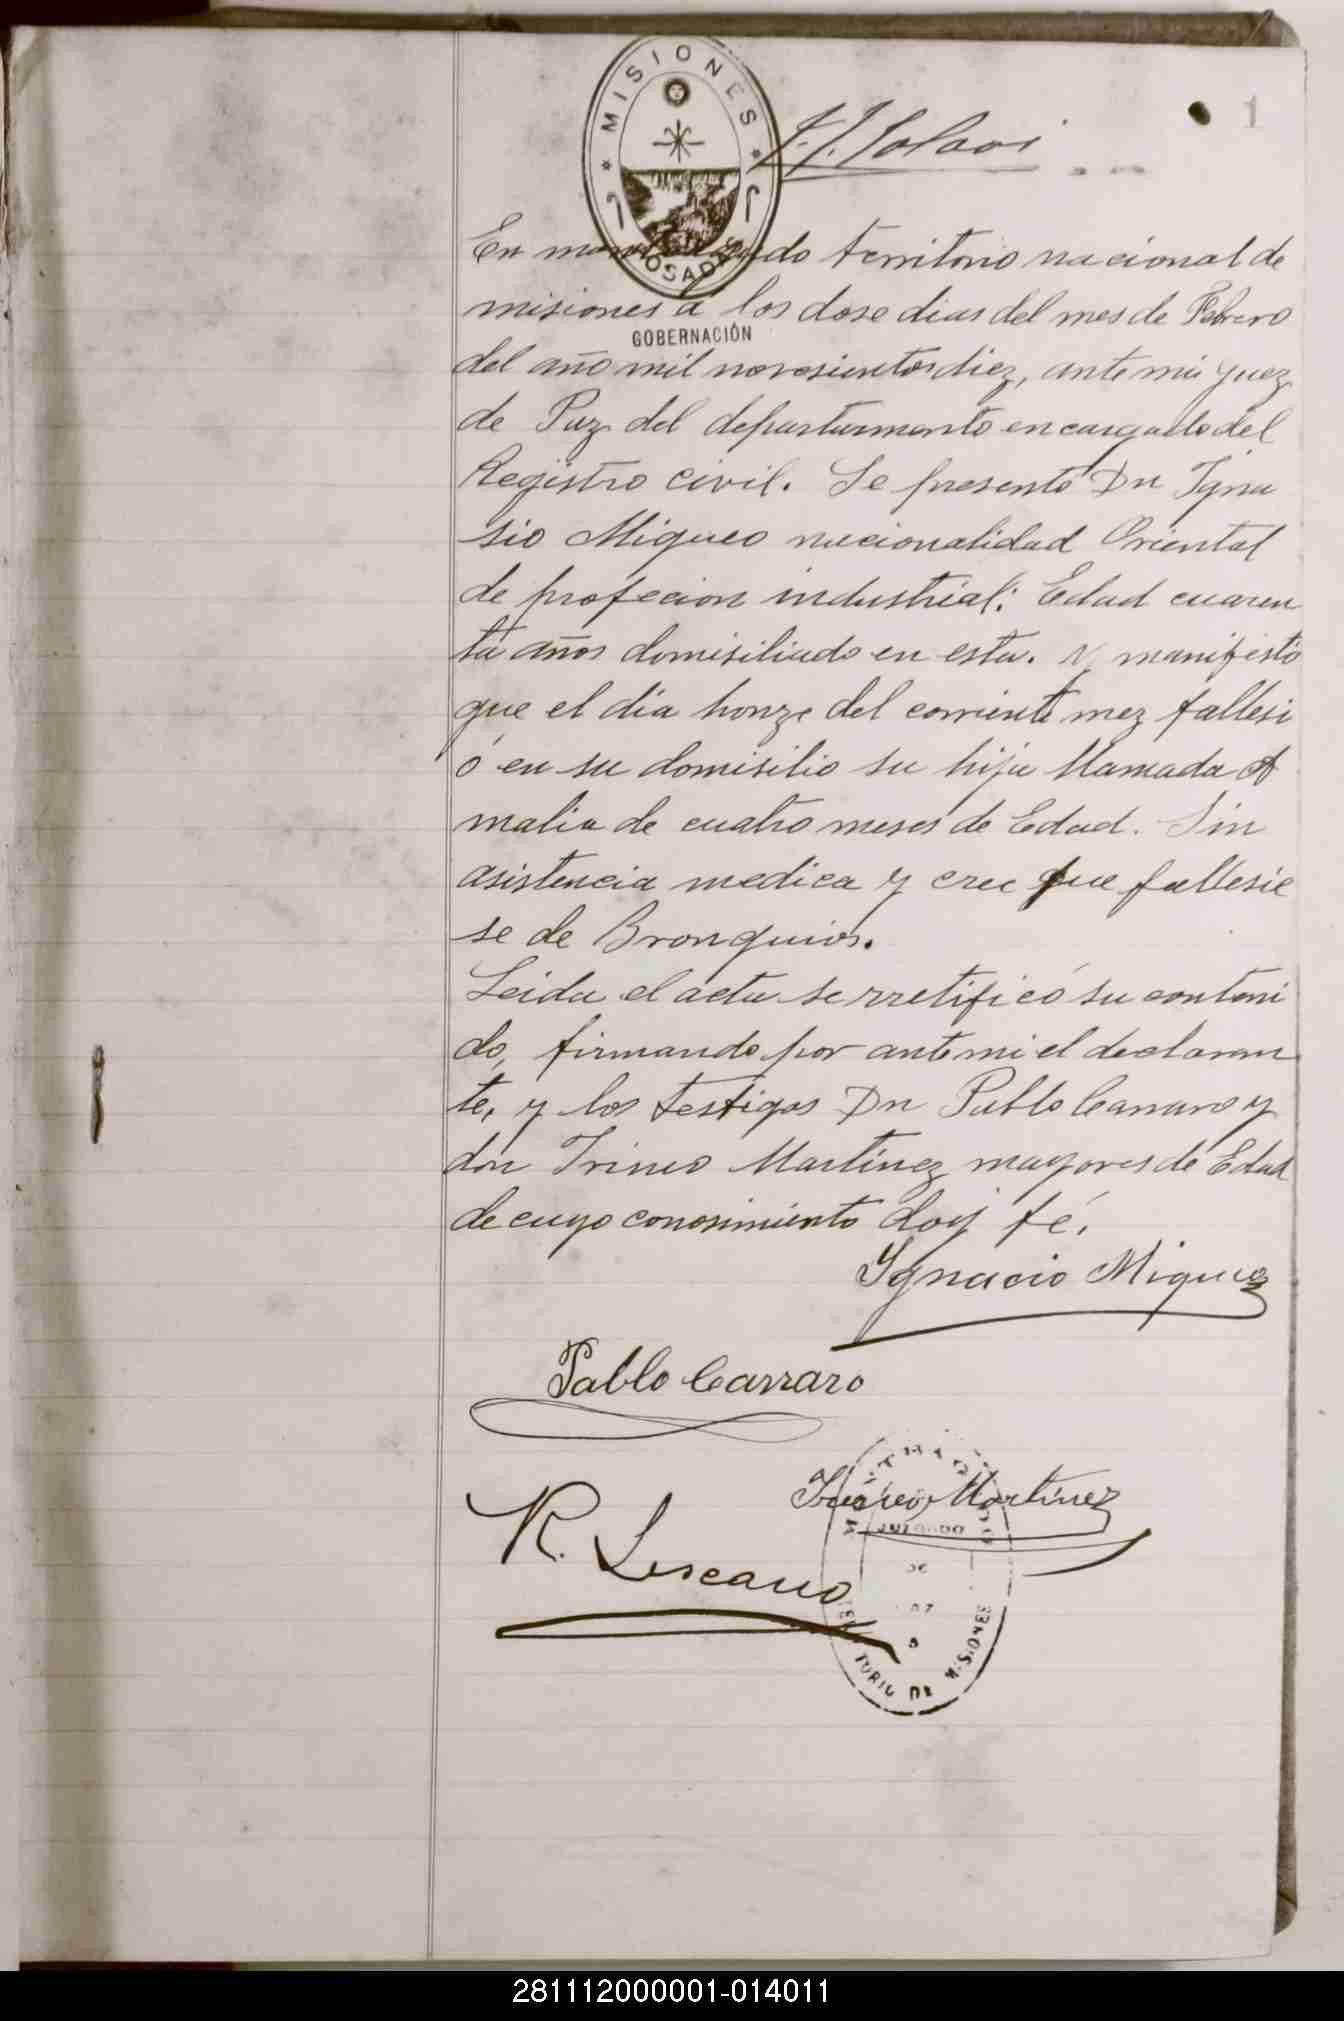 1
MISIONES
POSADAS
GOBERNACIÓN
En territorio nacional de
misiones a los dose dias del mes de Febrero
del año mil novesientos diez, ante mi juez
de Paz del departamento encargado del
Registro civil. Se presento Dn Igna
sio Migueo nacionalidad Oriental
de profecion industrial: Edad cuaren
ta años domisiliado en esta. y manifesto
que el dia honze del corriente mez fallesi
ó en su domisilio su hija llamada A
malia de cuatro meses de Edad. Sin
asistencia medica y cree que fallesie
se de Bronquios.
Leida el acta se rretificó su conteni
do, firmando por ante mi el declaran
te, y los testigos Dn Pablo Carraro y
don Irineo Martínez mayores de Edad
de cuyo conosimiento doy fé.
Ygnacio Miguez
Pablo Carraro
Irineo Martínez
R. Lescano
JUZGADO
DE
TERRITORIO DE MISIONES
281112000001-014011